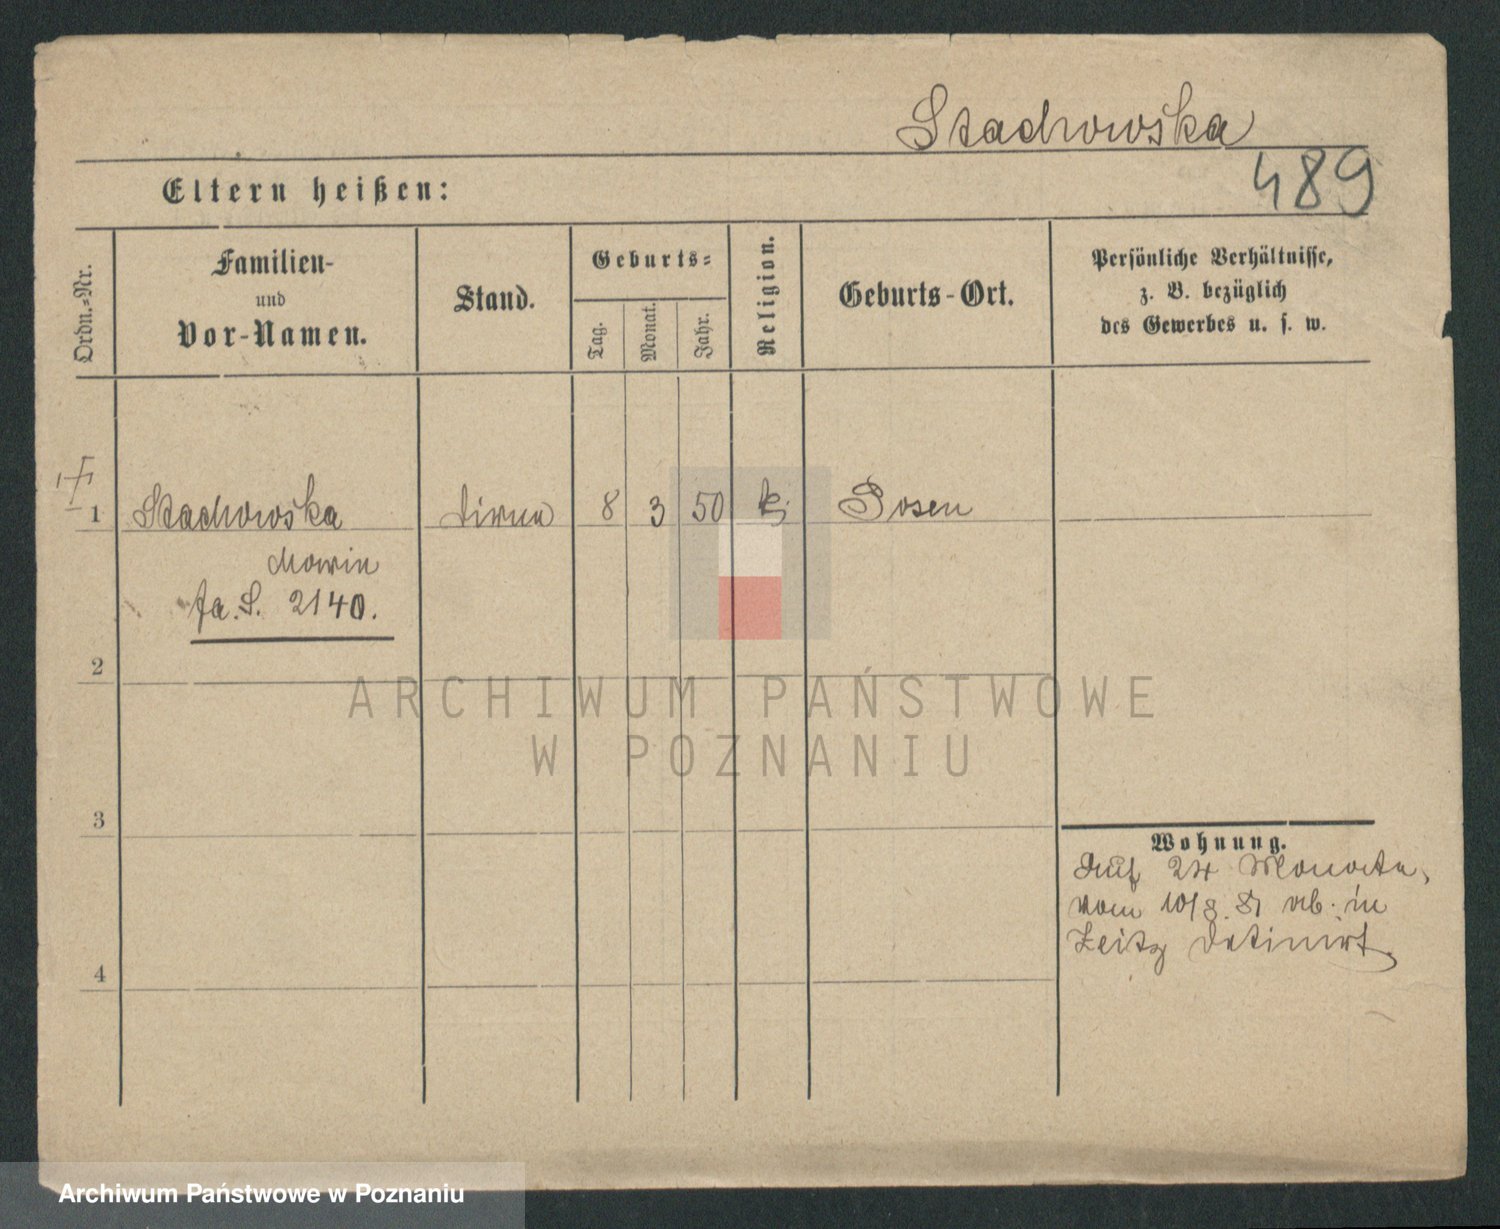 Stachowska
489
Eltern heißen:
Ordn.-Nr.
Familien-
und
Vor-Namen.
Stand.
Geburts-
Tag.
Monat.
Jahr.
Religion.
Geburts-Ort.
Persönliche Verhältnisse,
z. B. bezüglich
des Gewerbes u. s. w.
1 Stachowska Dirne 8 3 50 k. Posen
Marie
fa. S. 2140.
2
3
4
Wohnung.
Auf 24 Monate,
vom 10/8. 81 ab. in
Zeitz detinirt.
ARCHIWUM PAŃSTWOWE
W POZNANIU
Archiwum Państwowe w Poznaniu